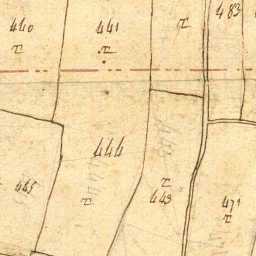 440
r
441
r
r
483
444
r
445
r
443
471
r